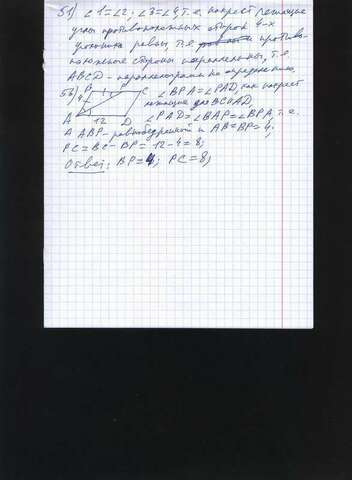 51) ∠1=∠2, ∠3=∠4, т.е. накрест лежащие
углы противоположных сторон 4-х
угольника равны, т.е. противо-
положные стороны параллельны, т.е.
ABCD - параллелограмм по определению.
56) B P C ∠BPA=∠PAD, как накрест
4 лежащие для BC и AD,
A 12 D ∠PAD=∠BAP=∠BPA, т.е.
Δ ABP - равнобедренный и AB=BP=4;
PC=BC-BP=12-4=8;
Ответ: BP=4; PC=8;